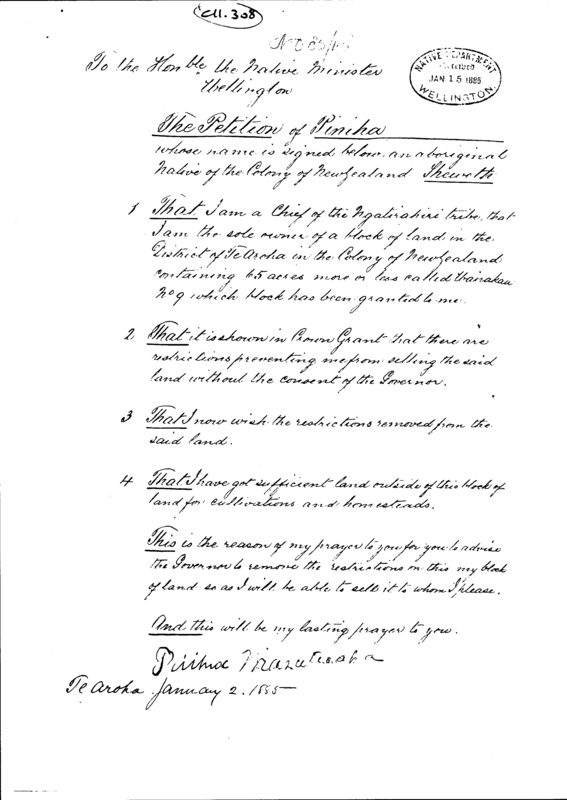 CM.308
N.O 85/
To the Honble the Native Minister
Wellington
NATIVE DEPARTMENT
RECEIVED
JAN 15 1885
WELLINGTON.
The Petition of Piniha
whose name is signed below, an aboriginal
Native of the Colony of New Zealand Sheweth
1 That I am a Chief of the Ngatirahiri tribe, that
I am the sole owner of a block of land in the
District of Te Aroha in the Colony of New Zealand
containing 65 acres more or less called Wairakau
No 9 which block has been granted to me.
2 That it is shown in Crown Grant that there are
restrictions preventing me from selling the said
land without the consent of the Governor.
3 That I now wish the restrictions removed from the
said land.
4 That I have got sufficient land outside of this block of
land for cultivations and homesteads.
This is the reason of my prayer to you for you to advise
the Governor to remove the restrictions on this my block
of land so as I will be able to sell it to whom I please.
And this will be my lasting prayer to you.
Piniha
Te Aroha January 2. 1885